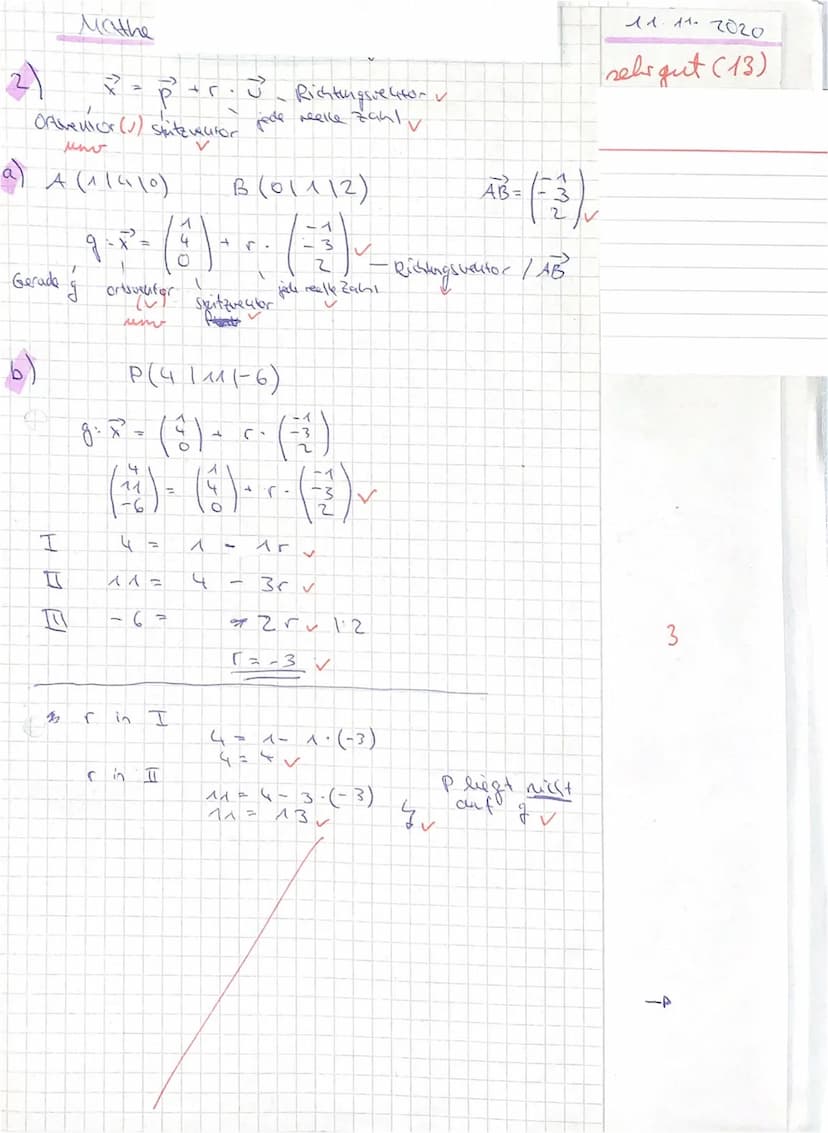 Mathe
11.11.2020
sehr gut (13)
2) x⃗ = p⃗ + r · u⃗ - Richtungsvektor ✓
Ortsvektor (✓) Stützvektor ✓ jede reelle Zahl ✓
unv
a) A (1|4|0) B (0|1|2) AB⃗ = (-1 -3 2) ✓
g: x⃗ = (1 4 0) + r · (-1 -3 2) ✓ — Richtungsvektor / AB⃗ ✓
Gerade g Ortsvektor (✓) Stützvektor ✓ jede reelle Zahl ✓
unv
b) P(4|11|-6)
g: x⃗ = (1 4 0) + r · (-1 -3 2)
(4 11 -6) = (1 4 0) + r · (-1 -3 2) ✓
I 4 = 1 - 1r ✓
II 11 = 4 - 3r ✓
III -6 = 2r ✓ |:2
3
r = -3 ✓
r in I
4 = 1 - 1·(-3)
4 = 4 ✓
r in II
11 = 4 - 3·(-3)
11 = 13 ✓ ↯ ✓
P liegt nicht
auf g ✓
→